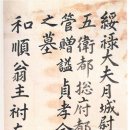 綏祿大夫月城尉
五衛都摠府都
管贈謚貞孝公
之墓
和順翁主祔左